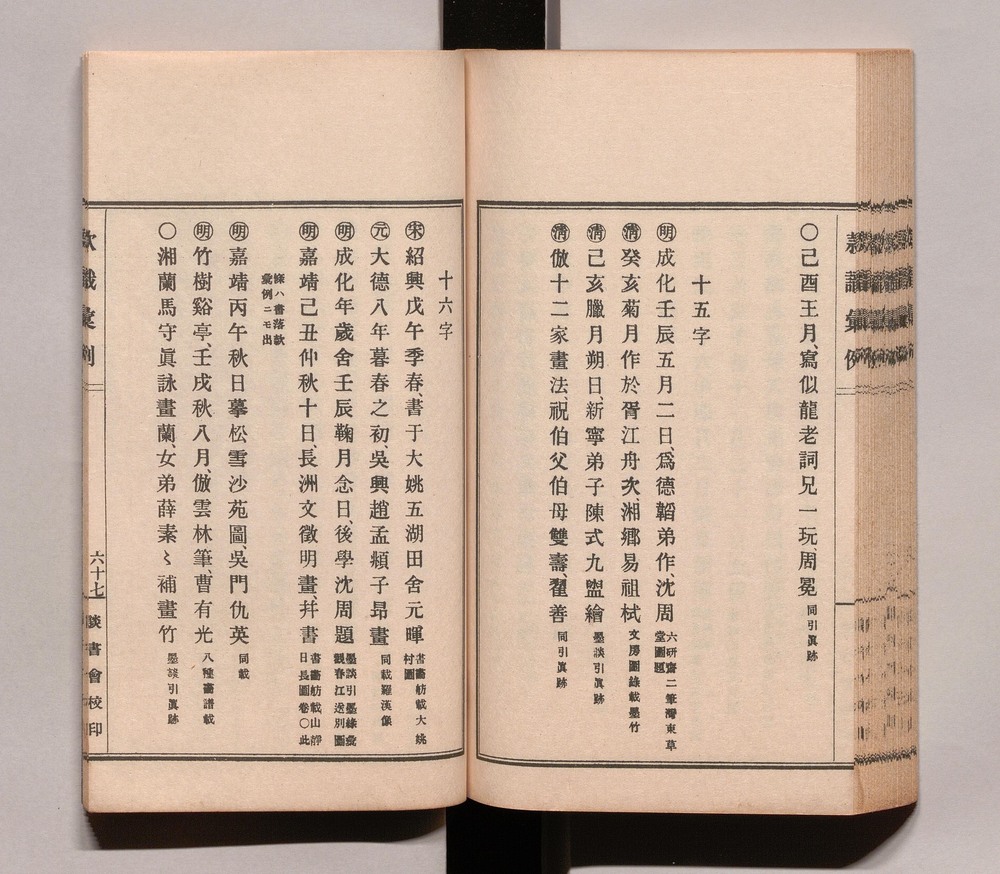 款識彙例
〇己酉王月、寫似龍老詞兄一玩、周冕 同引眞跡
十五字
明 成化壬辰五月二日、爲德韜弟作、沈周 六研齋二筆灣東草堂圖題
清 癸亥菊月作於胥江舟次、湘鄉易祖栻 文房圖錄載墨竹
清 己亥臘月朔日、新寧弟子陳式九盥繪 墨談引眞跡
清 倣十二家畫法、祝伯父伯母雙壽、翟善 同引眞跡
十六字
宋 紹興戊午季春、書于大姚五湖田舍元暉 書畫舫載大姚村圖
元 大德八年暮春之初、吳興趙孟頫子昂畫 同載羅漢像
明 成化年歲舍壬辰鞠月念日、後學沈周題 墨談引墨緣彙觀春江送別圖
明 嘉靖己丑仲秋十日、長洲文徵明畫、幷書 書畫舫載山靜日長圖卷〇此
條ハ書落款彙例ニモ出
明 嘉靖丙午秋日摹松雪沙苑圖、吳門仇英 同載
明 竹樹谿亭、壬戌秋八月、倣雲林筆、曹有光 八種畫譜載
〇湘蘭馬守眞詠畫蘭、女弟薛素〻補畫竹 墨談引眞跡
款識彙例
六十七
談書會校印